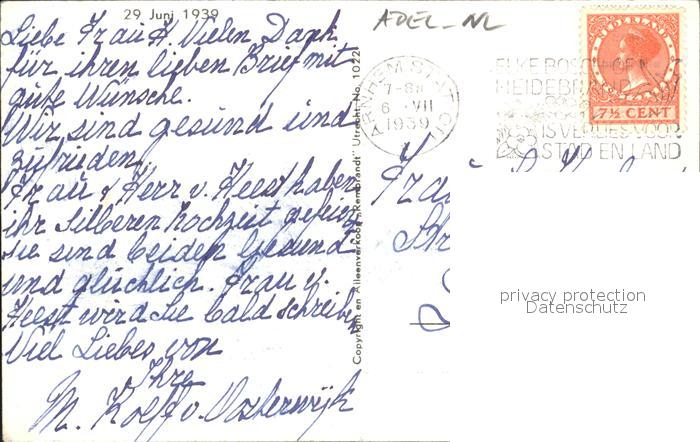 29 Juni 1939
Liebe Frau H. Vielen Dank
für ihren lieben Brief mit
gute Wünsche.
Wir sind gesund und
zufrieden.
Frau & Herr v. Heest haben
ihr Silberen Hochzeit gefeiert
sie sind beiden Gesund
und glücklich. Frau v.
Heest wird Sie bald schreiben
Viel Liebes von
Ihre
M. Kolff v. Oosterwijk
Copyright en Alleenverkoop „Rembrandt" Utrecht No. 1022
ADEL-NL
ARNHEM STATION
7-8
6 VII
1939
ELKE BOSCH- OF
HEIDEBRAND
IS VERLIES VOOR
STAD EN LAND
NEDERLAND
7½ CENT
Frau
privacy protection
Datenschutz